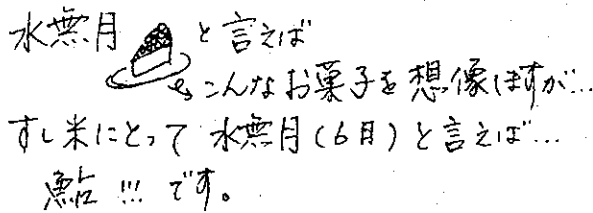 水無月 と言えば
こんなお菓子を想像しますが…
すし米にとって 水無月(6月)と言えば…
鮎!!! です。